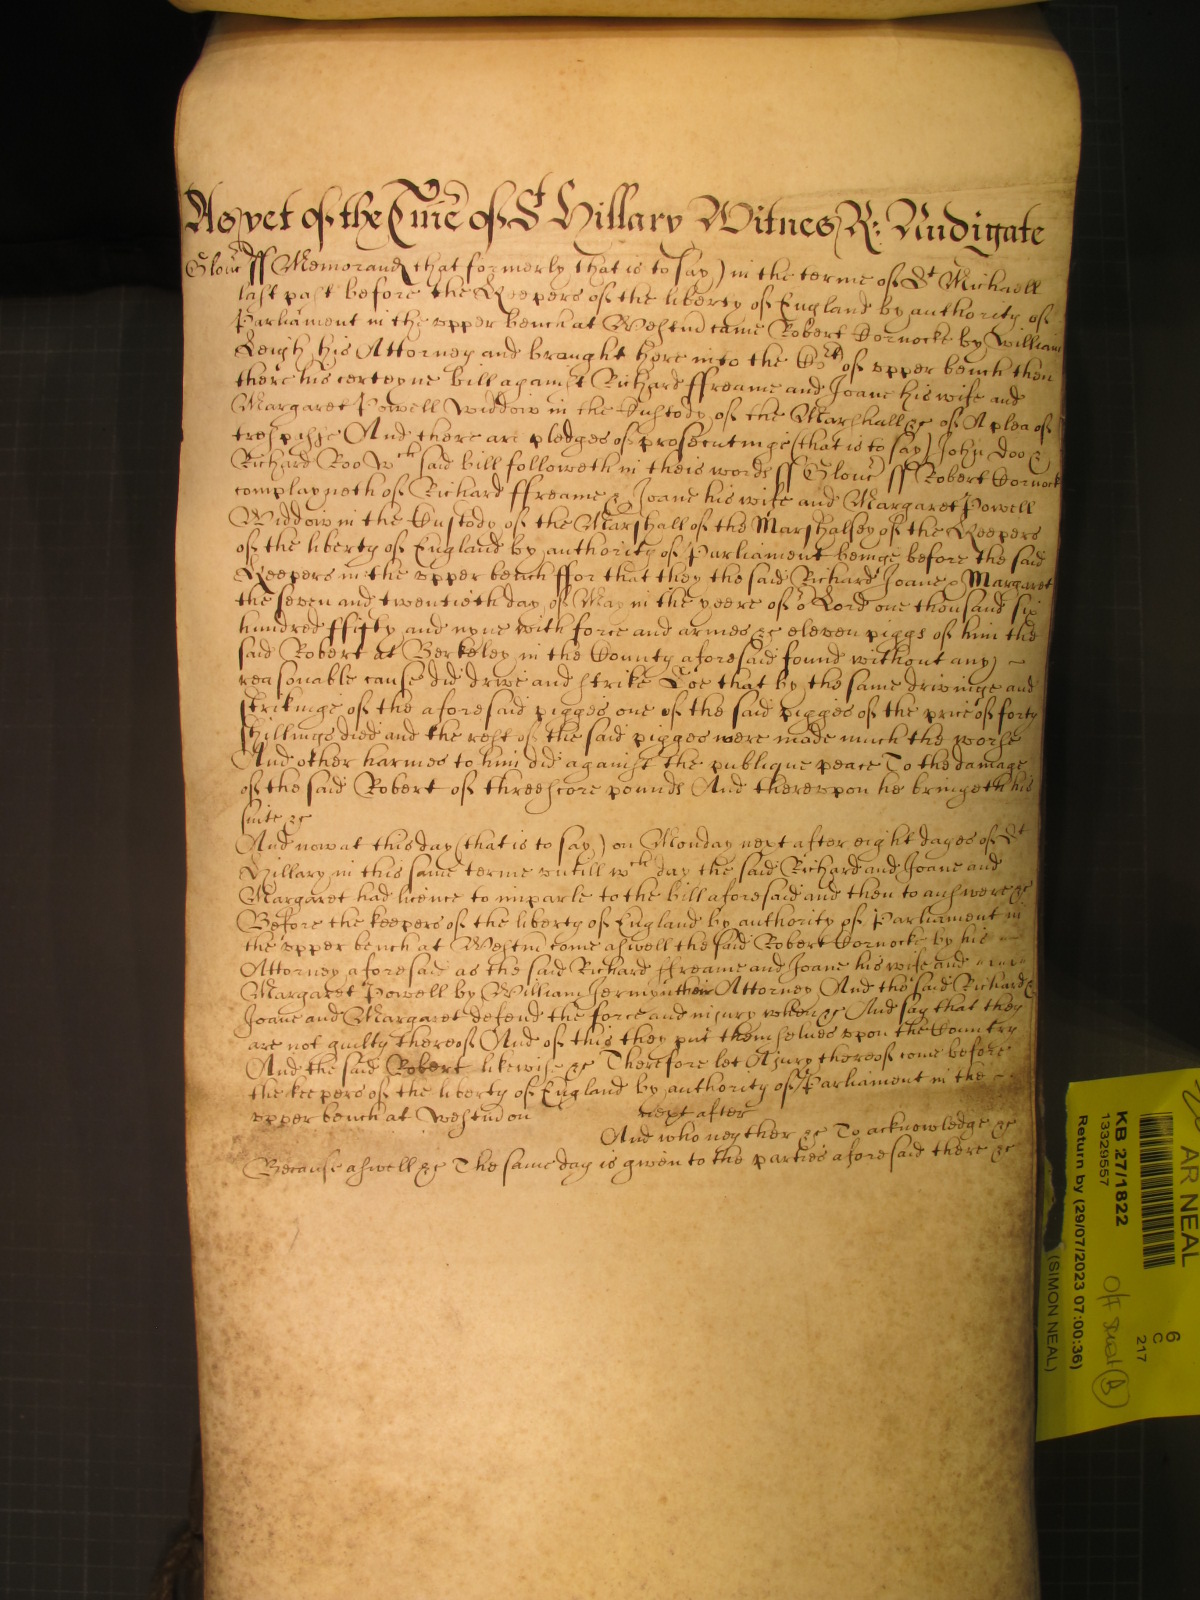 As yet of the Tme of St Hillary Witnes R: Nudigate
Glouc ff Memorand that formerly (that is to say) in the terme of St Michaell
last past before the Keepers of the liberty of England by authority of
Parliament in the upper bench at Westm came Robert Cornocke by William
Leigh his Attorney and braught here into the Crt of upper bench then
there his certeyne bill against Richard ffreame and Joane his wife and
Margaret Powell Widdow in the Custody of the Marshall &c of A plea of
trespasse And there are pledges of prosecutinge (that is to say) John Doo &
Richard Roo Wch said bill followeth in theis words ff Glouc ff Robert Cornock
complayneth of Richard ffreame & Joane his wife and Margaret Powell
Widdow in the Custody of the Marshall of the Marshalsey of the Keepers
of the liberty of England by authority of Parliament beinge before the said
Keepers in the upper bench ffor that they the said Richard Joane & Margaret
the seven and twentieth day of May in the yeere of or Lord one thousand six
hundred ffifty and nyne with force and armes &c eleven piggs of him the
said Robert at Berkeley in the County aforesaid found without any
reasonable cause did drive and strike Soe that by the same drivinge and
strikinge of the aforesaid pigges one of the said pigges of the price of forty
shillings died and the rest of the said pigges were made much the worse
And other harmes to him did against the publique peace To the damage
of the said Robert of threescore pounds And thereupon he bringeth his
suite &c
And now at this day (that is to say) on Monday next after eight dayes of St
Hillary in this same terme untill wch day the said Richard and Joane and
Margaret had licence to imparle to the bill aforesaid and then to answere &c
Before the keepers of the liberty of England by authority of Parliament in
the upper bench at Westm come aswell the said Robert Cornocke by his
Attorney aforesaid as the said Richard ffreame and Joane his wife and
Margaret Powell by William Jermyn their Attorney And the said Richard &
Joane and Margaret defend the force and injury when &c And say that they
are not guilty thereof And of this they put themselves upon the Country
And the said Robert likewise &c Therefore let A jury thereof come before
the keepers of the liberty of England by authority of Parliament in the
upper bench at Westm on next after
And who neyther &c To acknowledge &c
Because aswell &c The same day is given to the parties aforesaid there &c
AR NEAL
KB 27/1822
13329557
Return by (29/07/2023 07:00:36)
(SIMON NEAL)
6
C
217